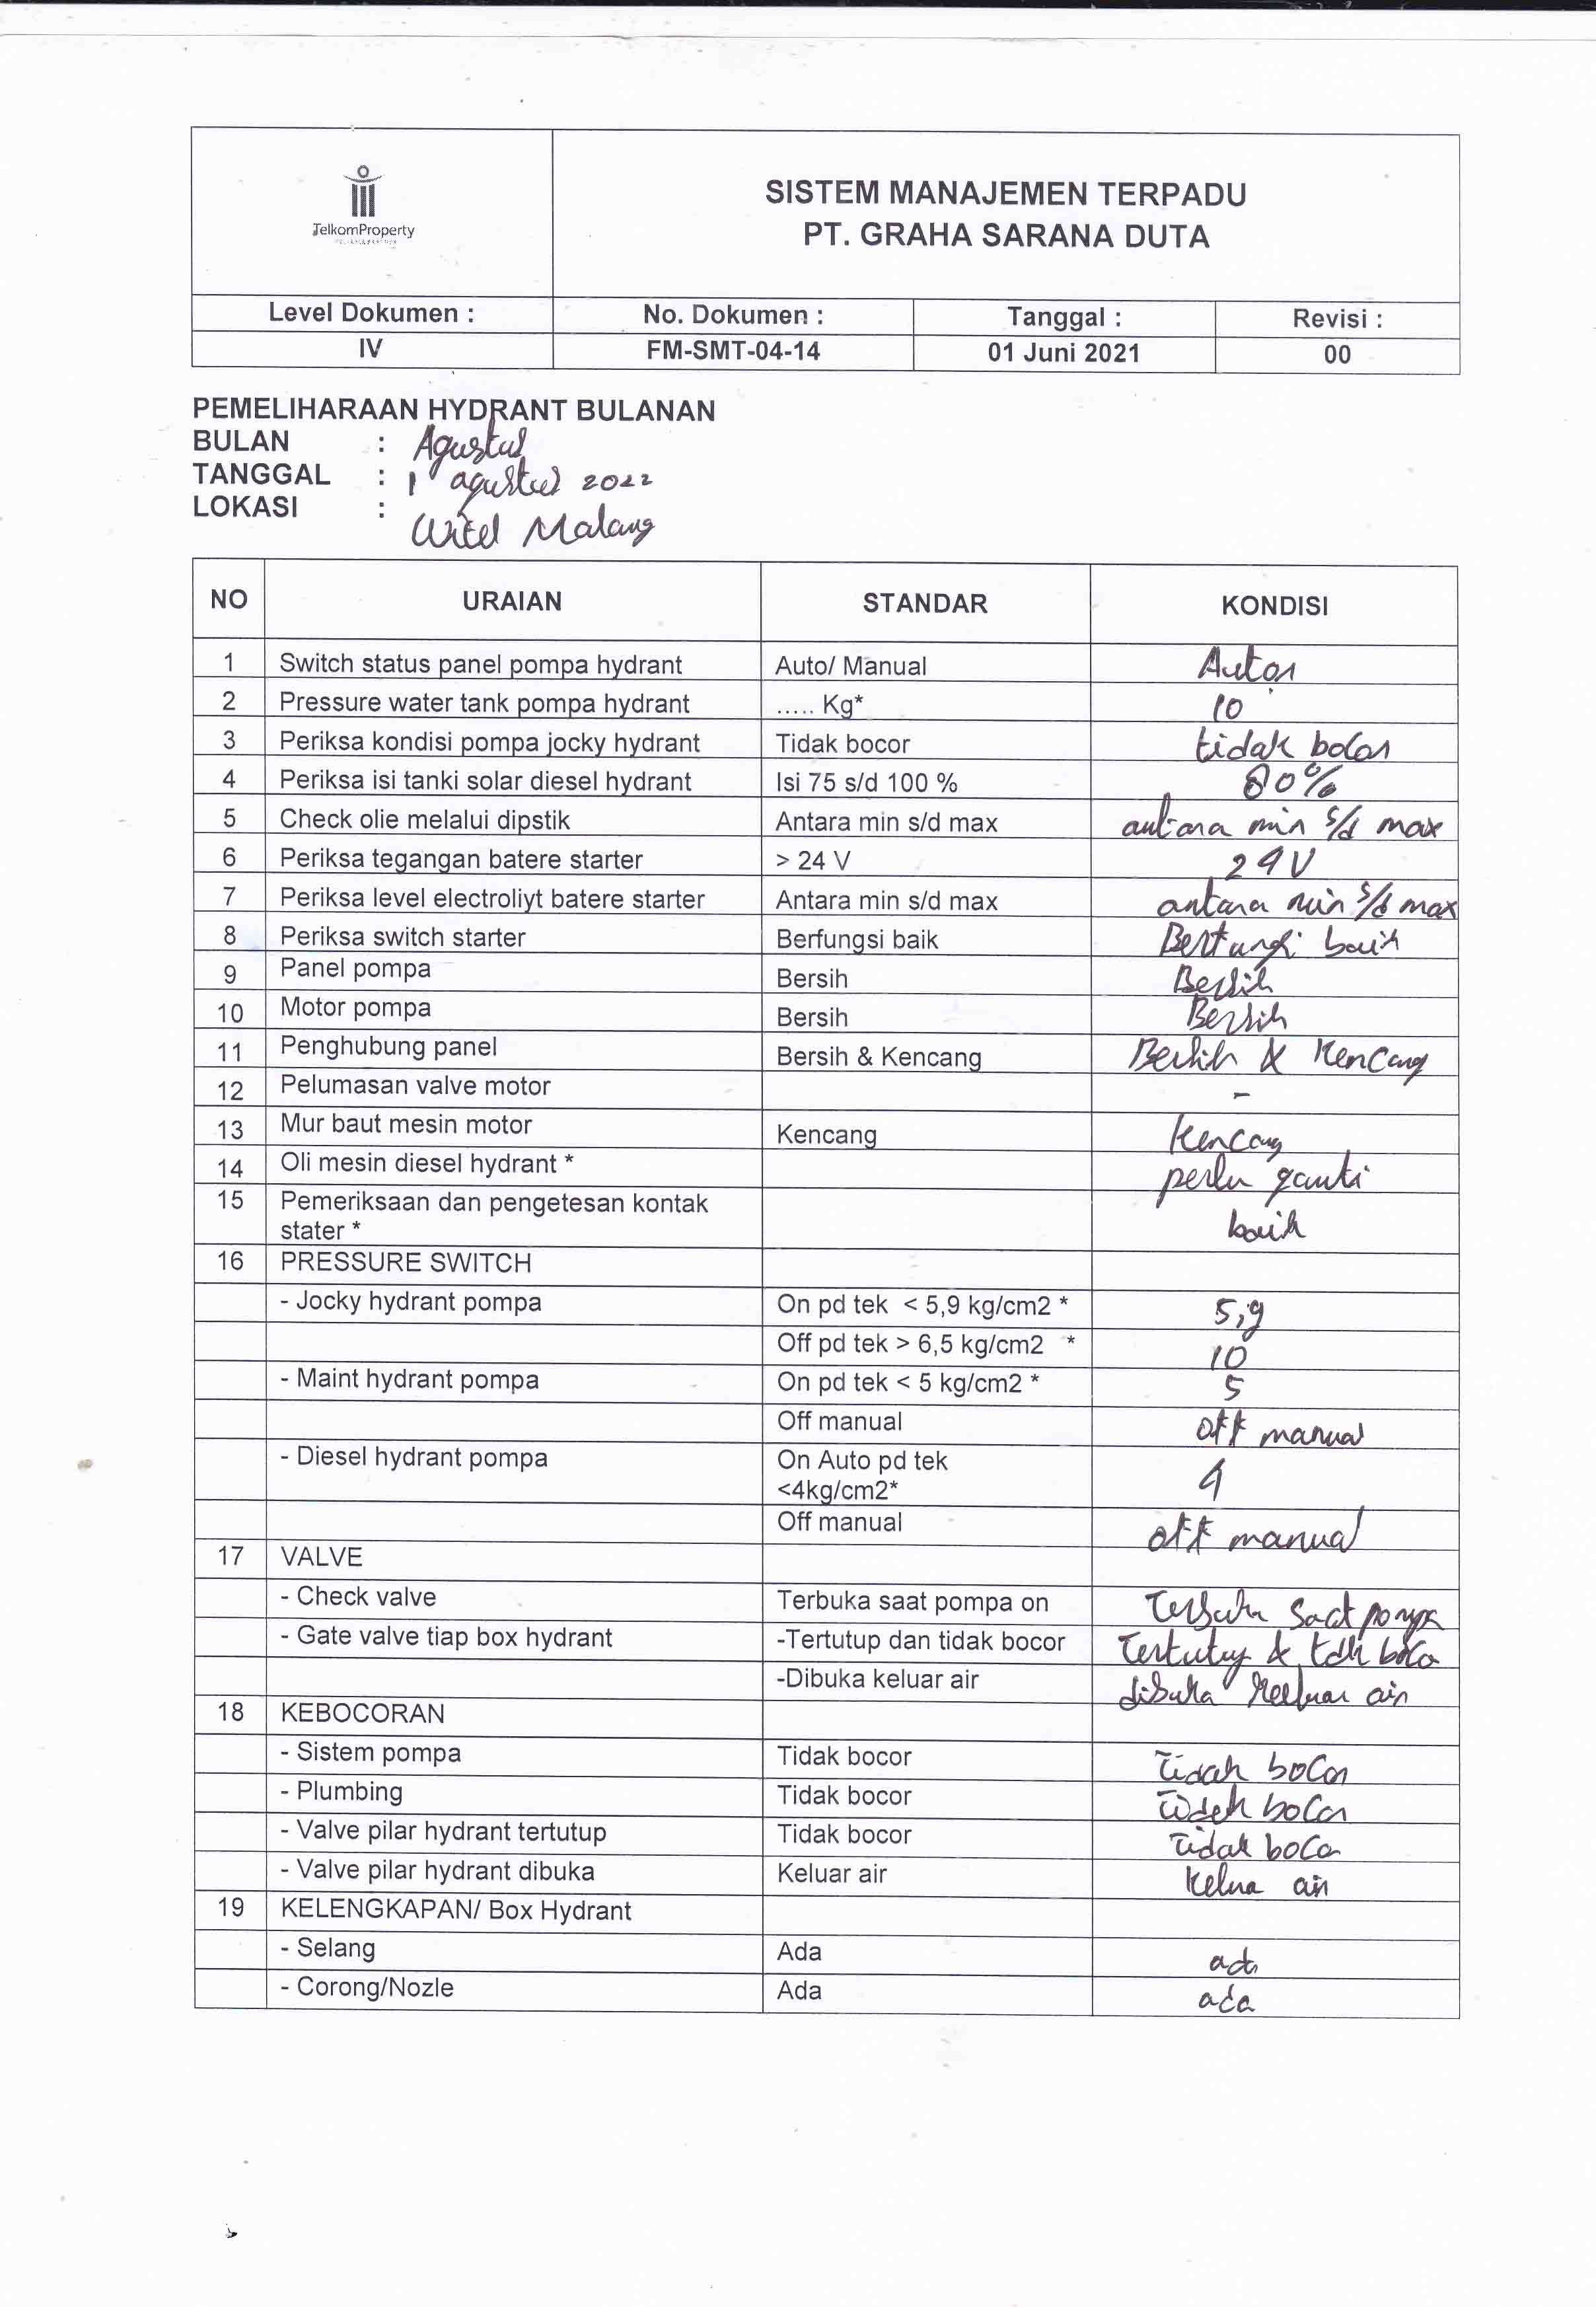 TelkomProperty
SISTEM MANAJEMEN TERPADU
PT. GRAHA SARANA DUTA
Level Dokumen : No. Dokumen : Tanggal : Revisi :
IV FM-SMT-04-14 01 Juni 2021 00
PEMELIHARAAN HYDRANT BULANAN
BULAN : Agustus
TANGGAL : 1 agustus 2022
LOKASI : Witel Malang
NO URAIAN STANDAR KONDISI
1 Switch status panel pompa hydrant Auto/ Manual Auto
2 Pressure water tank pompa hydrant ..... Kg* 10
3 Periksa kondisi pompa jocky hydrant Tidak bocor tidak bocor
4 Periksa isi tanki solar diesel hydrant Isi 75 s/d 100 % 80%
5 Check olie melalui dipstik Antara min s/d max antara min s/d max
6 Periksa tegangan batere starter > 24 V 24 V
7 Periksa level electroliyt batere starter Antara min s/d max antara min s/d max
8 Periksa switch starter Berfungsi baik Berfungsi baik
9 Panel pompa Bersih Bersih
10 Motor pompa Bersih Bersih
11 Penghubung panel Bersih & Kencang Bersih & Kencang
12 Pelumasan valve motor -
13 Mur baut mesin motor Kencang Kencang
14 Oli mesin diesel hydrant * perlu ganti
15 Pemeriksaan dan pengetesan kontak
stater * baik
16 PRESSURE SWITCH
- Jocky hydrant pompa On pd tek < 5,9 kg/cm2 * 5,9
Off pd tek > 6,5 kg/cm2 * 10
- Maint hydrant pompa On pd tek < 5 kg/cm2 * 5
Off manual off manual
- Diesel hydrant pompa On Auto pd tek
<4kg/cm2* 4
Off manual off manual
17 VALVE
- Check valve Terbuka saat pompa on Terbuka saat pompa
- Gate valve tiap box hydrant -Tertutup dan tidak bocor Tertutup & tdk boco
-Dibuka keluar air dibuka keluar air
18 KEBOCORAN
- Sistem pompa Tidak bocor Tidak bocor
- Plumbing Tidak bocor Tidak bocor
- Valve pilar hydrant tertutup Tidak bocor Tidak boco
- Valve pilar hydrant dibuka Keluar air Kelua air
19 KELENGKAPAN/ Box Hydrant
- Selang Ada ada
- Corong/Nozle Ada ada